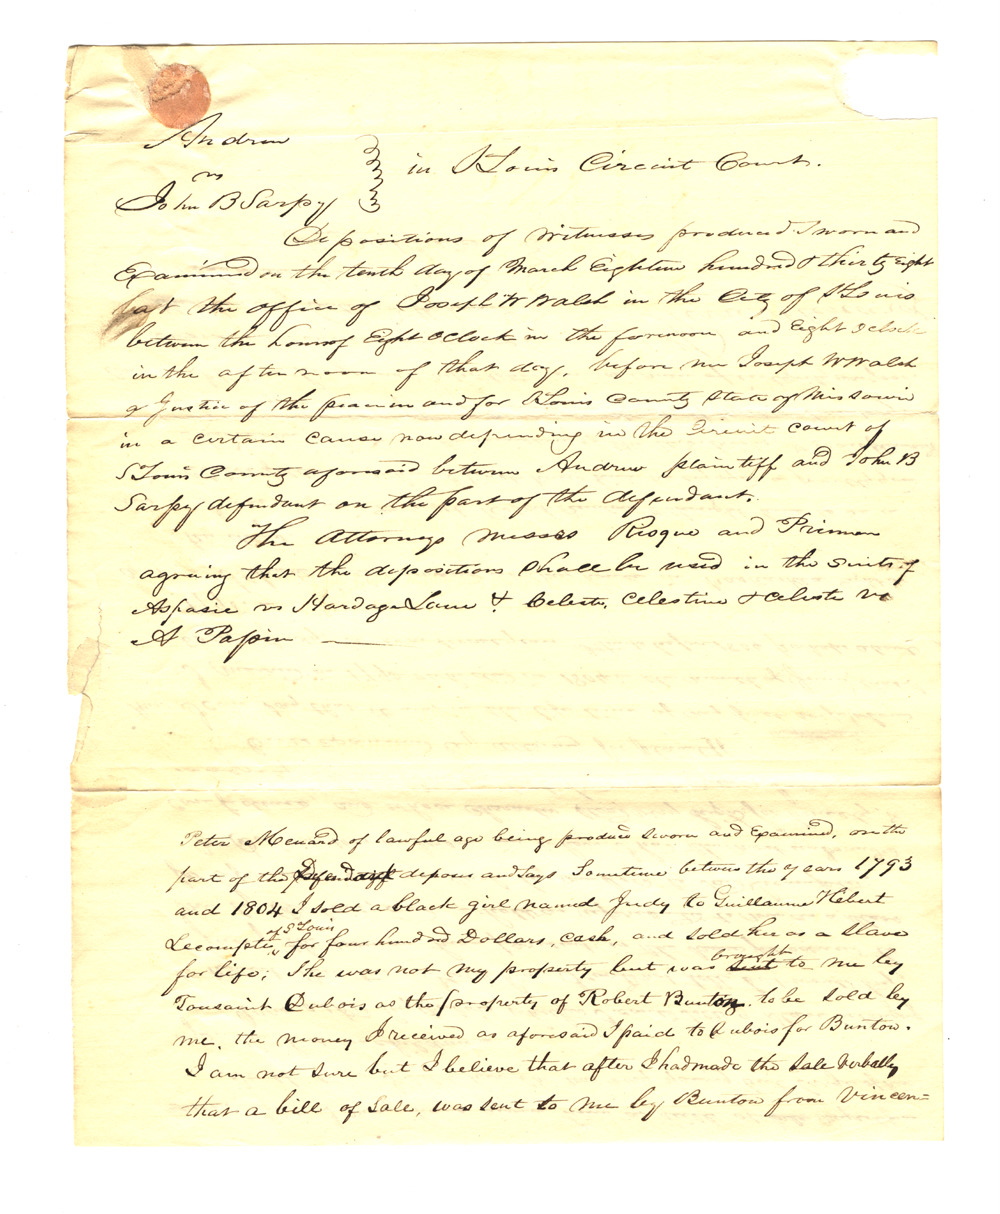 Andrew
vs
in St Louis Circuit Court.
John B Sarpy
Depositions of Witnesses produced Sworn and
Examined on the tenth day of March Eighteen hundred & thirty Eight
at the office of Joseph W Walsh in the City of St Louis
between the hours of Eight OClock in the forenoon and Eight oclock
in the afternoon of that day, before me Joseph W Walsh
a Justice of the peace in and for St Louis County State of Missouri
in a certain cause now depending in the Circuit court of
St Louis County aforesaid between Andrew plaintiff and John B
Sarpy defendant on the part of the defendant.
The Attorneys Messrs Risque and Primm
agreeing that the depositions shall be used in the suits of
Aspasie vs Hardage Lane & Celeste, Celestine & Celeste vs
A Papin
Peter Menard of lawful age being produced sworn and Examined, on the
part of the Defendant deposes and says Sometime between the years 1793
and 1804 I sold a black girl named Judy to Guillaume Hebert
of St Louis
Lecompte, for four hundred Dollars, cash, and sold her as a slave
brought
for life; She was not my property but was sent to me by
Tousaint Dubois as the property of Robert Buntin to be sold by
me. the money I received as aforesaid I paid to Dubois for Buntow.
I am not sure but I believe that after I had made the sale verbally
that a bill of sale, was sent to me by Buntow from Vincen=